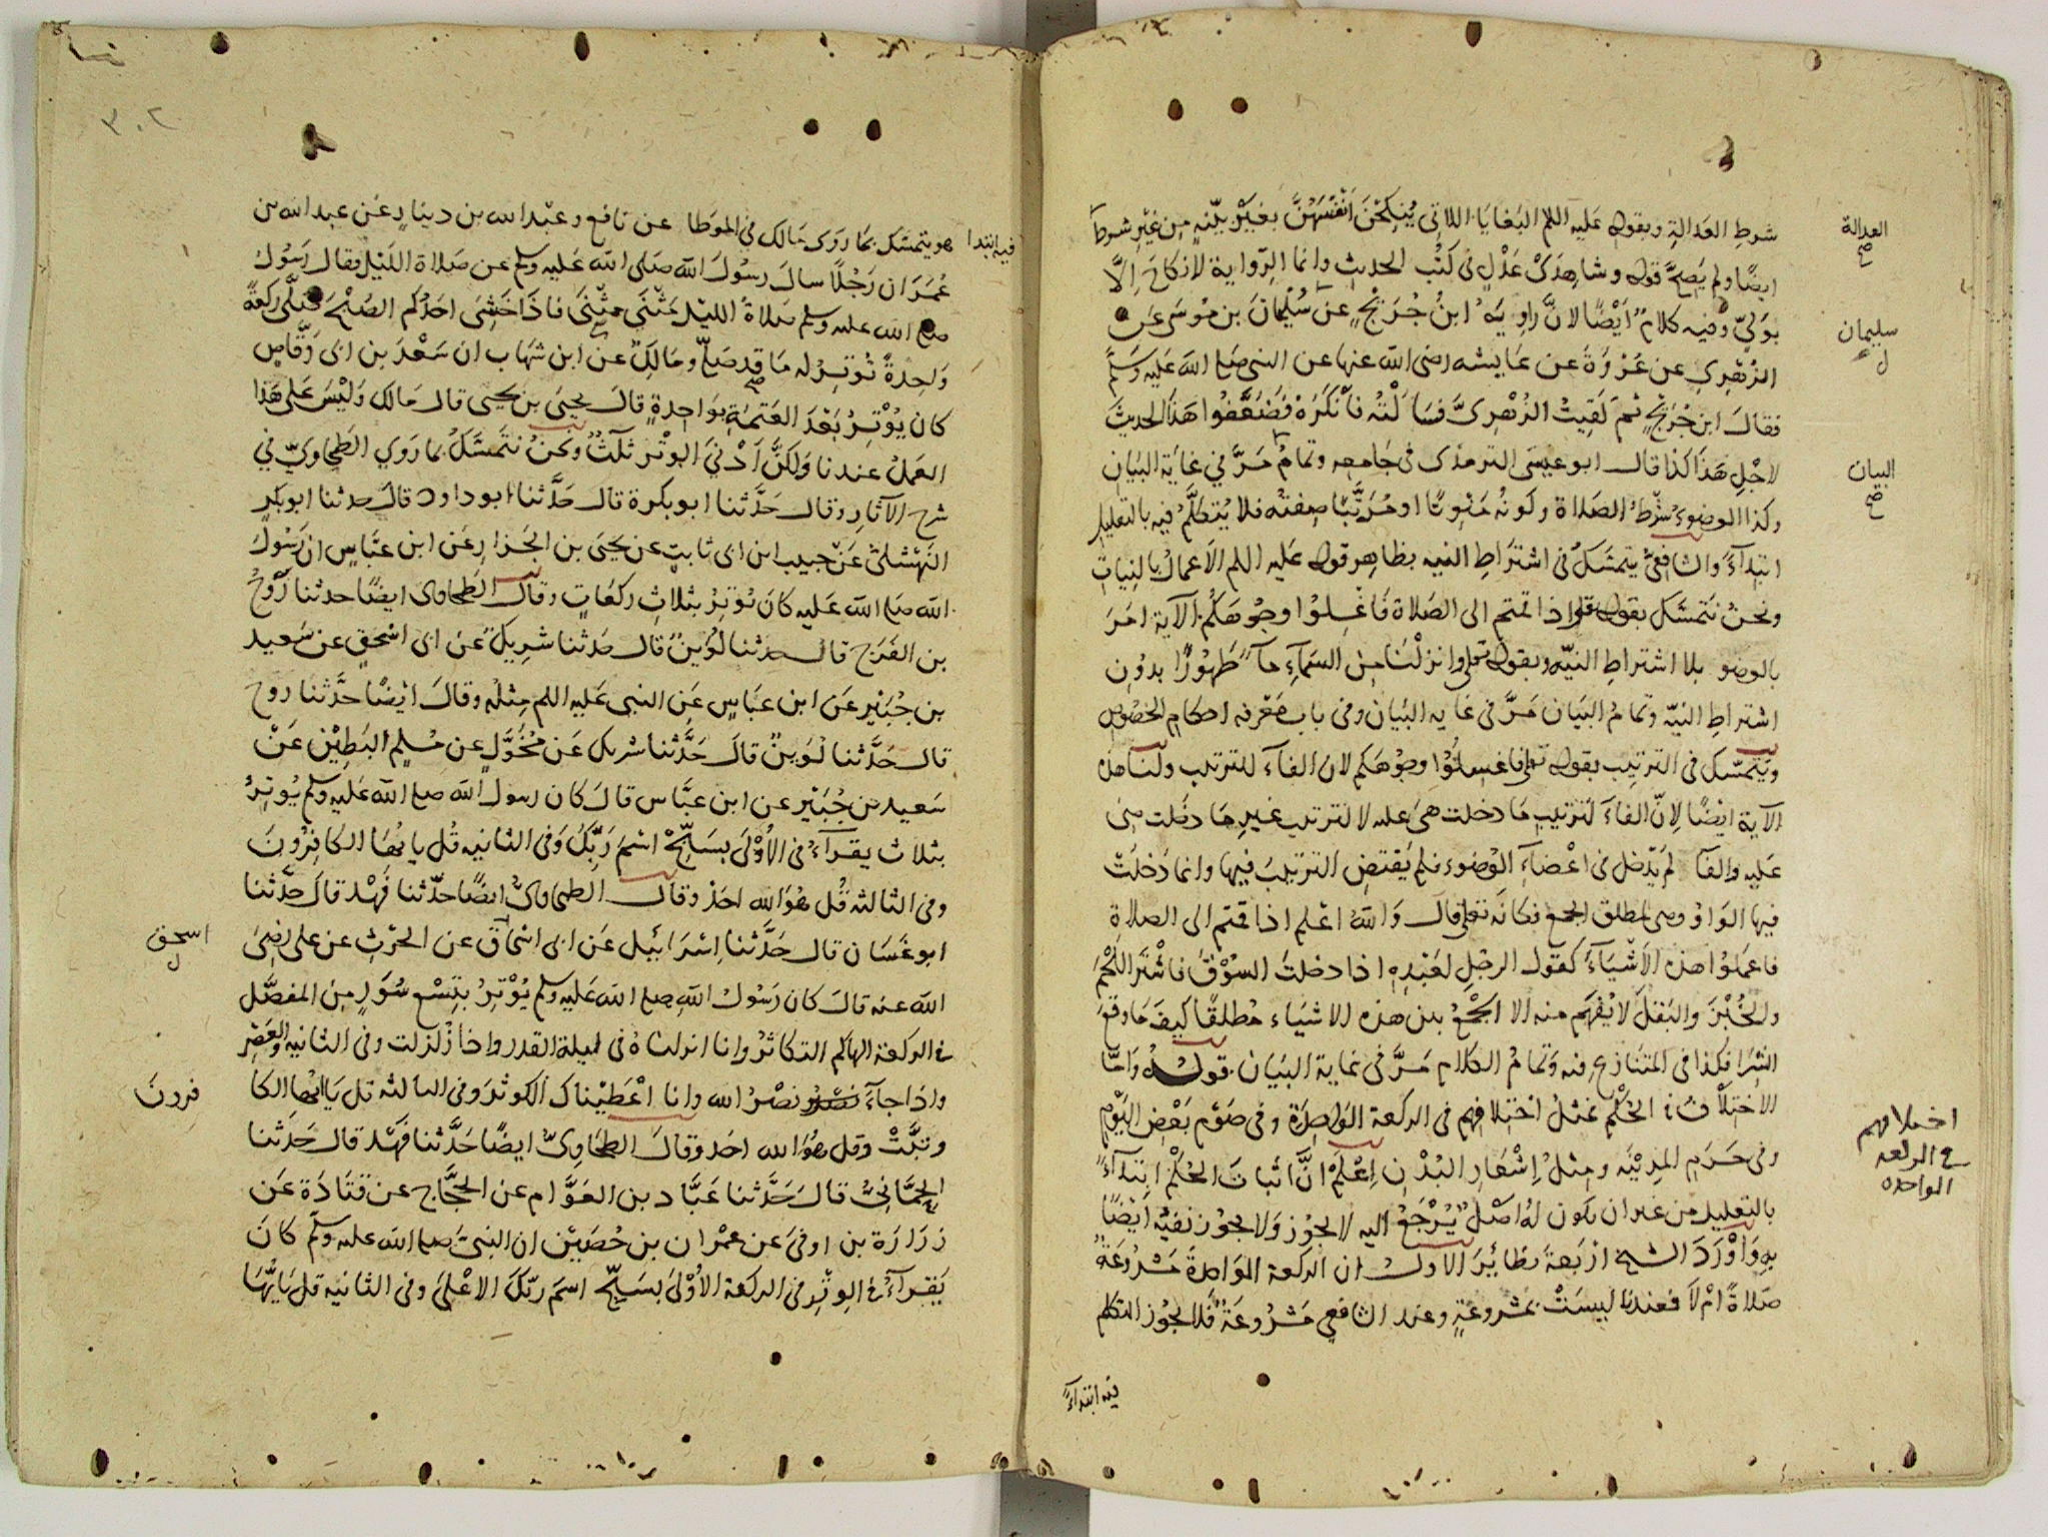 شرط العدالة وبقوله عليه اللم البغايا اللاتى ينكحن انفسهن بغير بينة من غير شرط
العدالة
صح
ايضا ولم يصح قوله وشاهدى عدل فى كتب الحديث وانما الرواية لا نكاح الا
بولى وفيه كلام ايضا لان راويه ابن جريج عن سليمان بن موسى عن
سليمان
ل
الزهرى عن عروة عن عايشه رضى الله عنها عن النبى صلع الله عليه وسلم
فقال ابن جريج ثم لقيت الزهرى فسالته فانكره فضعفوا هذا الحديث
لاجل هذا كذا قال ابو عيسى الترمذى فى جامعه وتمامه مر فى غاية البيان
البيان
صح
وكذا الوضوء شرط الصلاة وكونه منويا او مرتبا صفته فلا يتكلم فيه بالتعليل
ابتداء والشافعى يتمسك فى اشتراط النيه بظاهر قوله عليه اللم الاعمال بالنيات
ونحن نتمسك بقوله تعلى اذا قمتم الى الصلاة فاغسلوا وجوهكم الآية امر
بالوضو بلا اشتراط النيه وبقوله تعلى وانزلنا من السماء ماء طهورا بدون
اشتراط النيه وتمام البيان مر فى غايه البيان وفى باب معرفه احكام الخصوص
ويتمسك فى الترتيب بقوله تعلى فاغسلوا وجوهكم لان الفاء للترتيب ولنا هذه
الآية ايضا لان الفاء لترتيب ما دخلت هى عليه لا لترتيب غير ما دخلت هى
عليه والفا لم يدخل فى اعضاء الوضوء فلم يقتض الترتيب فيها وانما دخلت
فيها الواو وهى لمطلق الجمع فكانه تعلى قال والله اعلم اذا قمتم الى الصلاة
فاعملوا هذه الاشياء كقول الرجل لعبده اذا دخلت السوق فاشتر اللحم
والخبز والبقل لا يفهم منه الا الجمع بين هذه الاشياء مطلقا كيف ما وقع
الشرا فكذا فى المتنازع فيه وتمام الكلام مر فى غاية البيان قوله واما
الاختلاف فى الحكم فمثل اختلافهم فى الركعة الواحدة وفى صوم بعض اليوم
اختلافهم
فى الركعه
الواحده
وفى حرم المدينه ومثل اشعار البدن اعلم ان اثبات الحكم ابتداء
بالتعليل من غير ان يكون له اصل يرجع اليه لا يجوز ولا يجوز نفيه ايضا
به واورد الشيخ اربعة نظائر الاول ان الركعة الواحدة مشروعة
صلاة ام لا فعندنا ليست بمشروعة وعند الشافعي مشروعة فلا يجوز التكلم
فيه ابتداء
٣٠٢
فيه ابتدا هو يتمسك بما روى مالك في الموطا عن نافع وعبد الله بن دينار عن عبد الله بن
عمر ان رجلا سال رسول الله صلى الله عليه وسلم عن صلاة الليل فقال رسول
صلع الله عليه وسلم صلاة الليل مثنى مثنى فاذا خشى احدكم الصبح صلى ركعة
واحدة توتر له ما قد صلى ومالك عن ابن شهاب ان سعد بن ابى وقاص
كان يوتر بعد العتمة بواحدة قال يحيى بن يحيى قال مالك وليس على هذا
العمل عندنا ولكن ادنى الوتر ثلث ونحن نتمسك بما روي الطحاوي في
شرح الآثار وقال حدثنا ابو بكرة قال حدثنا ابو داود قال حدثنا ابو بكر
النهشلى عن حبيب ابن ابى ثابت عن يحيى بن الجزار عن ابن عباس ان رسول
الله صلع الله عليه كان يوتر بثلاث ركعات وقال الطحاوى ايضا حدثنا روح
بن الفرج قال حدثنا لوين قال حدثنا شريك عن ابى اسحق عن سعيد
بن جبير عن ابن عباس عن النبى عليه اللم مثله وقال ايضا حدثنا روح
قال حدثنا لوين قال حدثنا شريك عن مخول عن مسلم البطين عن
سعيد بن جبير عن ابن عباس قال كان رسول الله صلع الله عليه وسلم يوتر
بثلاث يقرآء فى الاولى بسبح اسم ربك وفى الثانيه قل يا يها الكافرون
وفى الثالثه قل هو الله احد وقال الطحاوى ايضا حدثنا فهد قال حدثنا
ابو غسان قال حدثنا اسرائيل عن ابى اسحاق عن الحرث عن على رضى
اسحق
ل
الله عنه قال كان رسول الله صلع الله عليه وسلم يوتر بتسع سور من المفصل
فى الركعة الهاكم التكاثر وانا انزلناه فى ليلة القدر واذا زلزلت وفى الثانيه والعصر
واذا جآء نصر الله وانا اعطيناك الكوثر وفى الثالثه قل يا ايها الكا
فرون
وتبت وقل هو الله احد وقال الطحاوى ايضا حدثنا فهد قال حدثنا
الحمانى قال حدثنا عباد بن العوام عن الحجاج عن قتادة عن
زرارة بن اوفى عن عمران بن حصين ان النبى صلع الله عليه وسلم كان
يقرآء فى الوتر فى الركعة الاولى بسبح اسم ربك الاعلى وفى الثانيه قل يايها